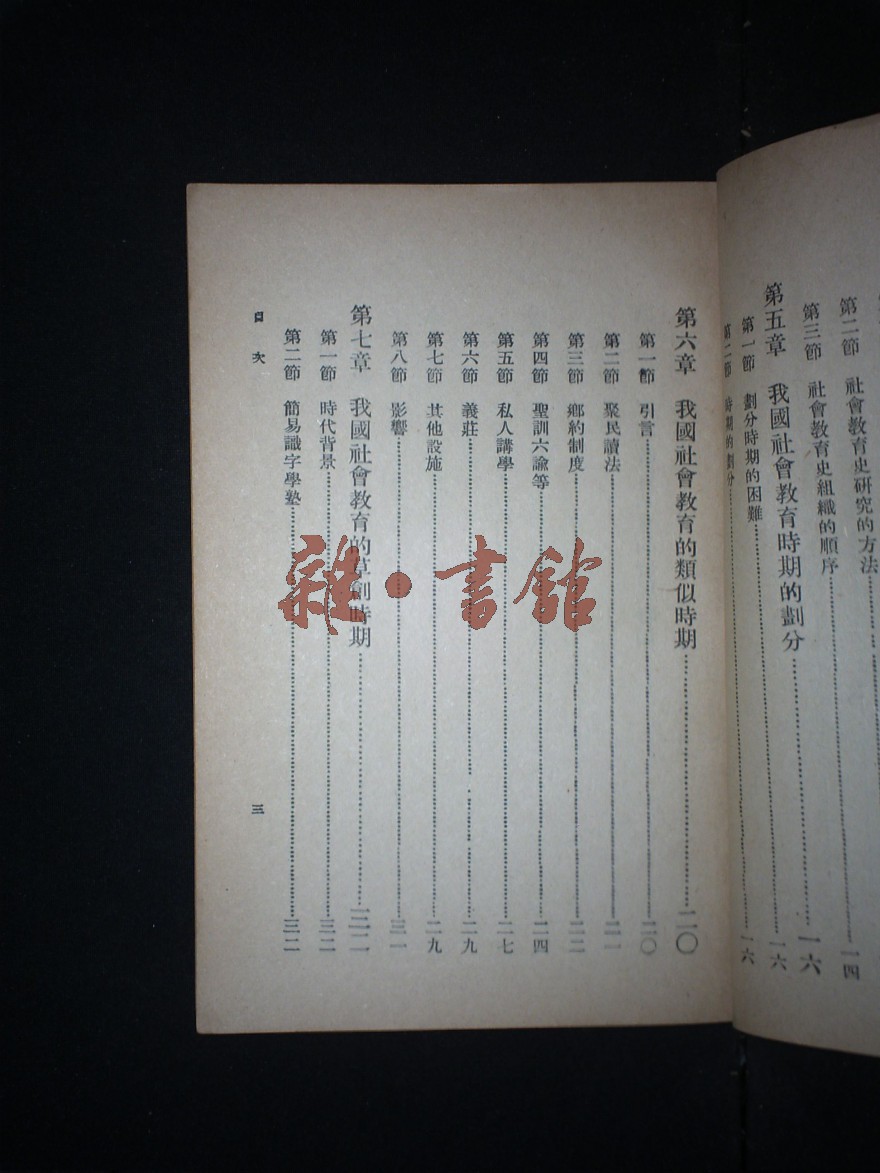 第二節 社會教育史研究的方法……一四
第三節 社會教育史組織的順序……
第五章 我國社會教育時期的劃分……一六
第一節 劃分時期的困難……一六
第二節 時期的劃分……一六
第六章 我國社會教育的類似時期……二〇
第一節 引言……二〇
第二節 聚民讀法……二一
第三節 鄉約制度……二二
第四節 聖訓六諭等……二四
第五節 私人講學……二七
第六節 義莊……二九
第七節 其他設施……二九
第八節 影響……三一
第七章 我國社會教育的草創時期……三二
第一節 時代背景……三二
第二節 簡易識字學塾……三二
目次
三
雜·書館